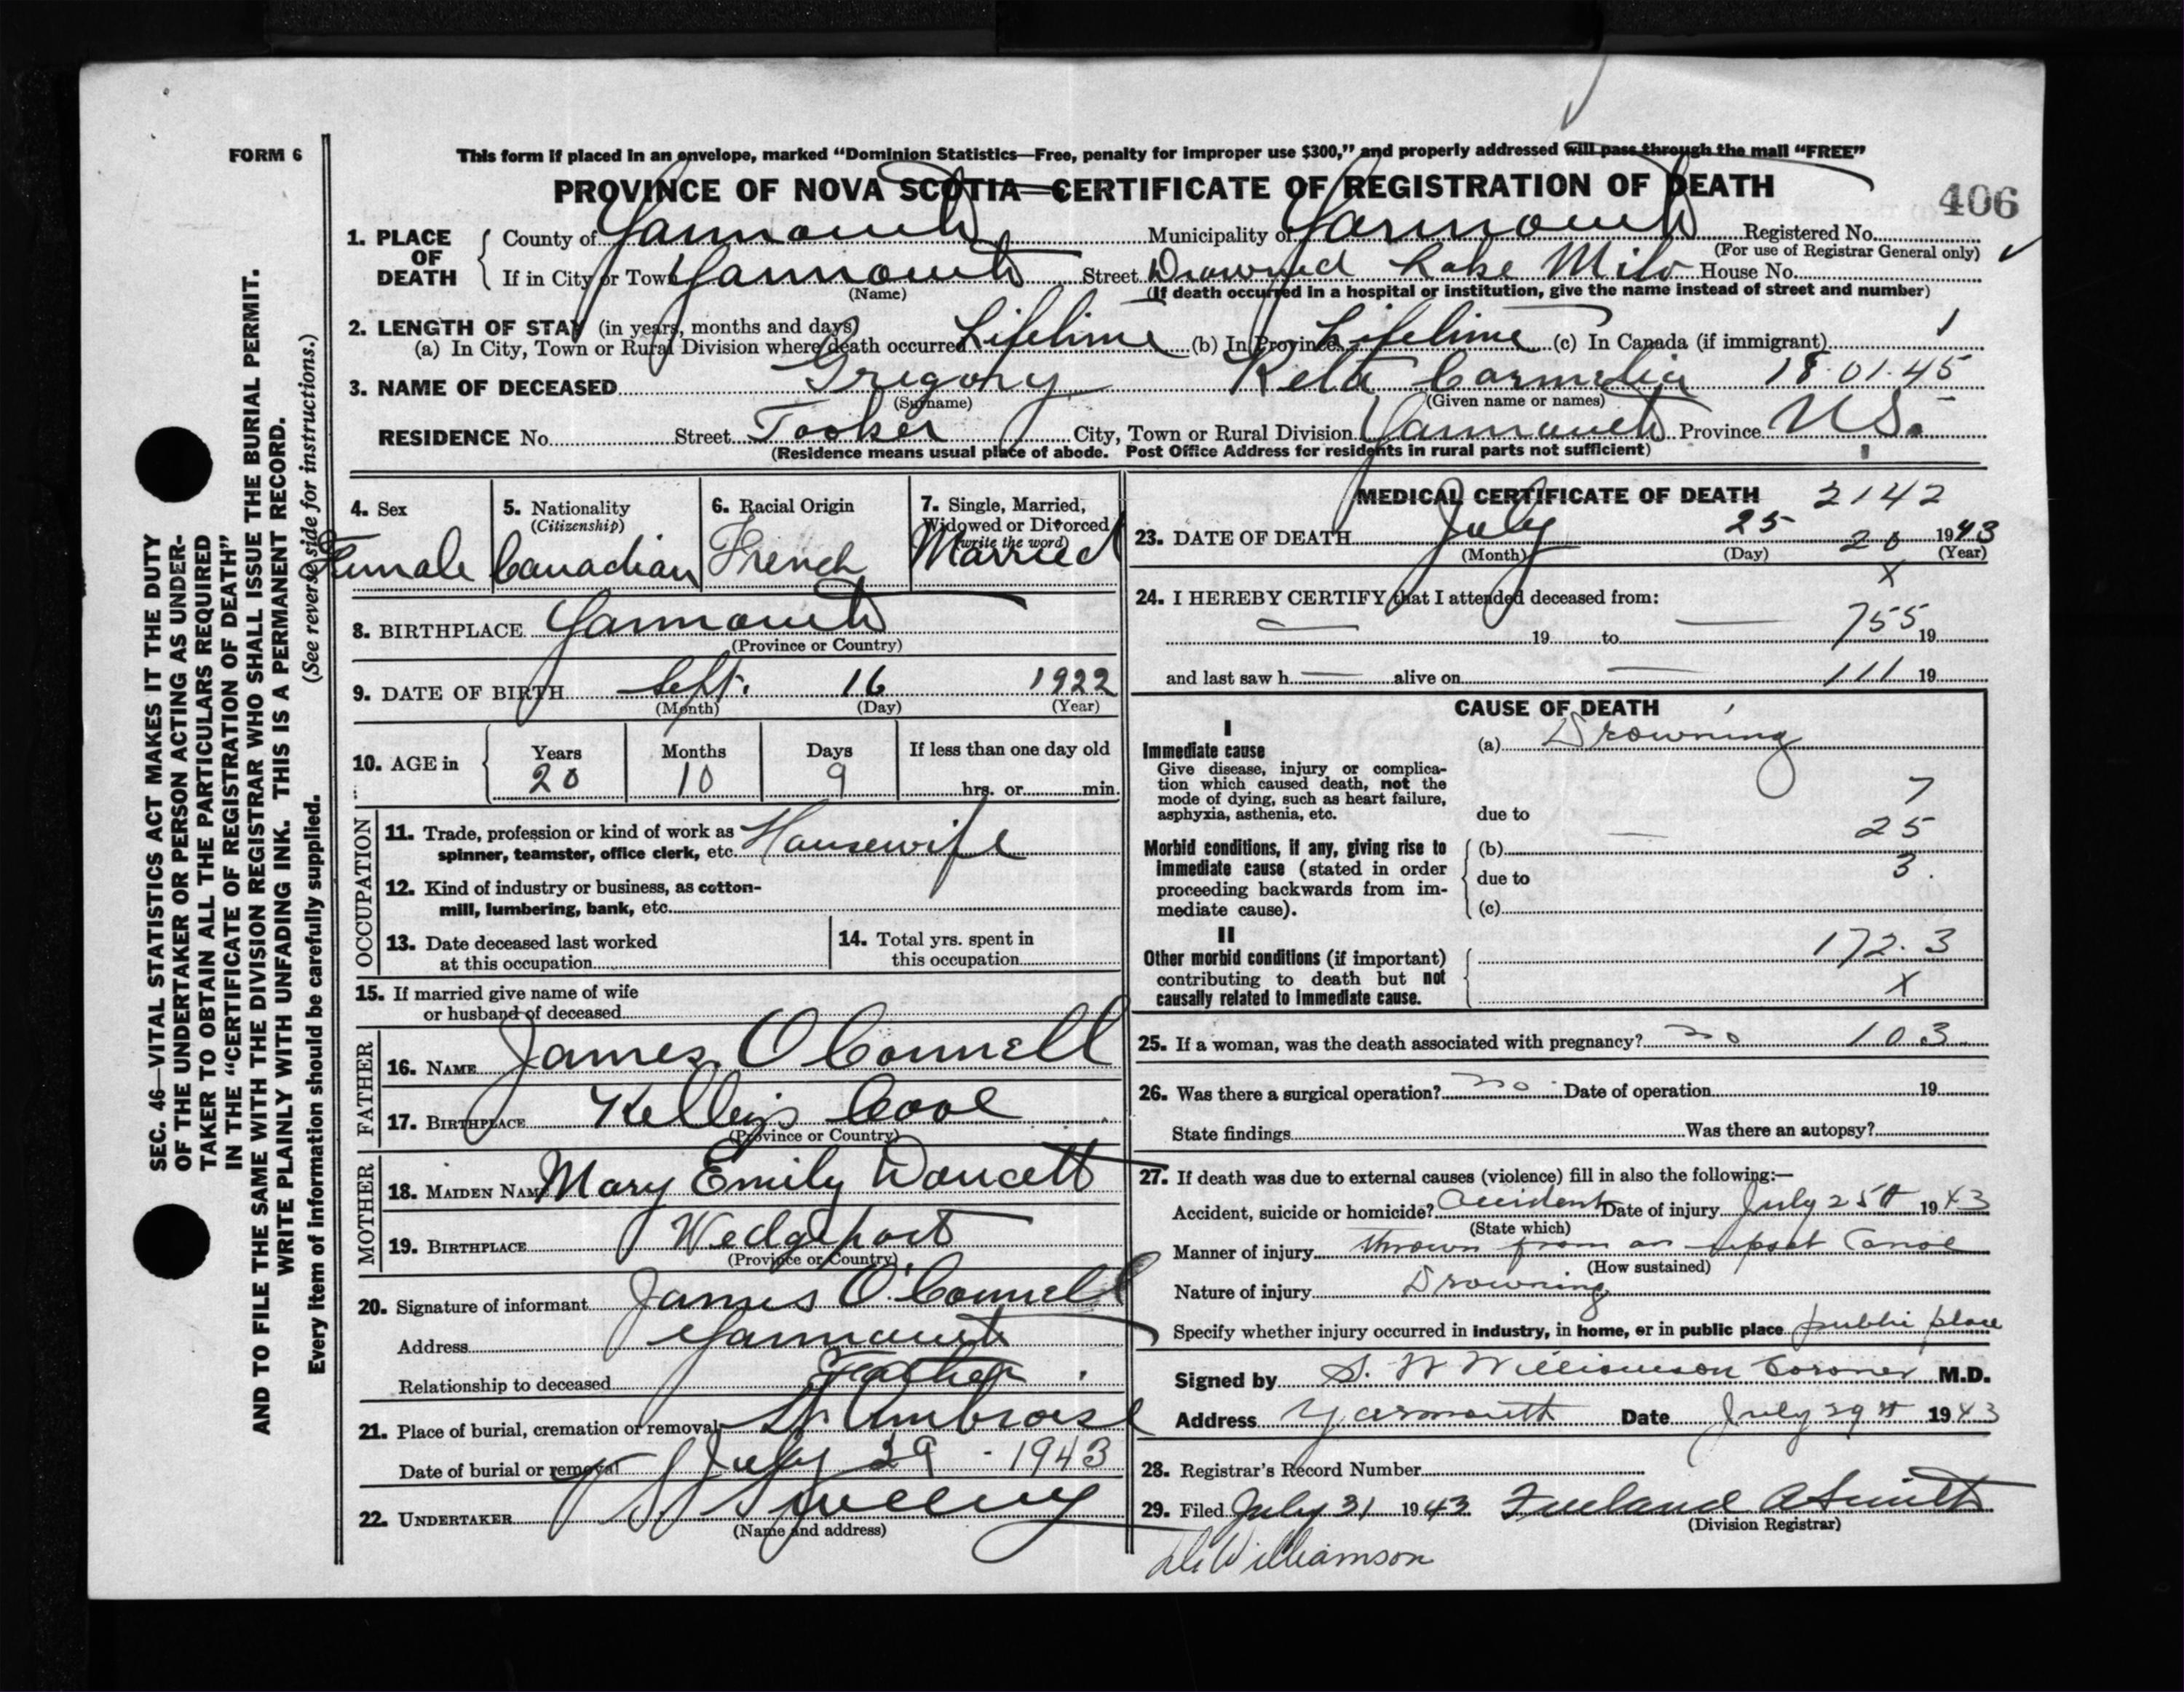 FORM 6
This form if placed in an envelope, marked "Dominion Statistics—Free, penalty for improper use $300," and properly addressed will pass through the mail "FREE"
PROVINCE OF NOVA SCOTIA—CERTIFICATE OF REGISTRATION OF DEATH
406
1. PLACE OF DEATH { County of Yarmouth Municipality of Yarmouth Registered No.
(For use of Registrar General only)
If in City or Town Yarmouth Street Drowned Lake Milo House No.
(Name) (If death occurred in a hospital or institution, give the name instead of street and number)
2. LENGTH OF STAY (in years, months and days)
(a) In City, Town or Rural Division where death occurred Lifetime (b) In Province Lifetime (c) In Canada (if immigrant)
3. NAME OF DECEASED Gregory Reta Carmelia 18.01.45
(Surname) (Given name or names)
RESIDENCE No. Street Tooker City, Town or Rural Division Yarmouth Province N.S.
(Residence means usual place of abode. Post Office Address for residents in rural parts not sufficient)
4. Sex Female
5. Nationality (Citizenship) Canadian
6. Racial Origin French
7. Single, Married, Widowed or Divorced (write the word) Married
8. BIRTHPLACE Yarmouth
(Province or Country)
9. DATE OF BIRTH Sept. 16 1922
(Month) (Day) (Year)
10. AGE in { Years 20 Months 10 Days 9 If less than one day old
hrs. or min.
OCCUPATION
11. Trade, profession or kind of work as spinner, teamster, office clerk, etc. Housewife
12. Kind of industry or business, as cotton-mill, lumbering, bank, etc.
13. Date deceased last worked at this occupation
14. Total yrs. spent in this occupation
15. If married give name of wife or husband of deceased
FATHER
16. NAME James O Connell
17. BIRTHPLACE Kelleys Cove
(Province or Country)
MOTHER
18. MAIDEN NAME Mary Emily Doucett
19. BIRTHPLACE Wedgeport
(Province or Country)
20. Signature of informant James O'Connell
Address Yarmouth
Relationship to deceased Father
21. Place of burial, cremation or removal St Ambrose
Date of burial or removal July 29 - 1943
22. UNDERTAKER V S Sweeny
(Name and address)
MEDICAL CERTIFICATE OF DEATH 2142
23. DATE OF DEATH July 25 1943
(Month) (Day) (Year)
20
x
24. I HEREBY CERTIFY that I attended deceased from:
— 19 to — 755 19
and last saw h — alive on — 111 19
CAUSE OF DEATH
I
Immediate cause
Give disease, injury or complication which caused death, not the mode of dying, such as heart failure, asphyxia, asthenia, etc.
(a) Drowning
due to
7
25
3.
Morbid conditions, if any, giving rise to immediate cause (stated in order proceeding backwards from immediate cause).
(b)
due to
(c)
II
Other morbid conditions (if important) contributing to death but not causally related to immediate cause.
172.3
x
25. If a woman, was the death associated with pregnancy? no 103
26. Was there a surgical operation? no Date of operation 19
State findings Was there an autopsy?
27. If death was due to external causes (violence) fill in also the following:—
Accident, suicide or homicide? Accident Date of injury July 25th 1943
(State which)
Manner of injury thrown from an upset Canoe
(How sustained)
Nature of injury Drowning
Specify whether injury occurred in industry, in home, or in public place public place
Signed by S. W Williamson Coroner M.D.
Address Yarmouth Date July 29th 1943
28. Registrar's Record Number
29. Filed July 31 1943 Freeland A Smith
(Division Registrar)
Williamson
SEC. 46—VITAL STATISTICS ACT MAKES IT THE DUTY
OF THE UNDERTAKER OR PERSON ACTING AS UNDER-
TAKER TO OBTAIN ALL THE PARTICULARS REQUIRED
IN THE "CERTIFICATE OF REGISTRATION OF DEATH"
AND TO FILE THE SAME WITH THE DIVISION REGISTRAR WHO SHALL ISSUE THE BURIAL PERMIT.
WRITE PLAINLY WITH UNFADING INK. THIS IS A PERMANENT RECORD.
Every item of information should be carefully supplied. (See reverse side for instructions.)